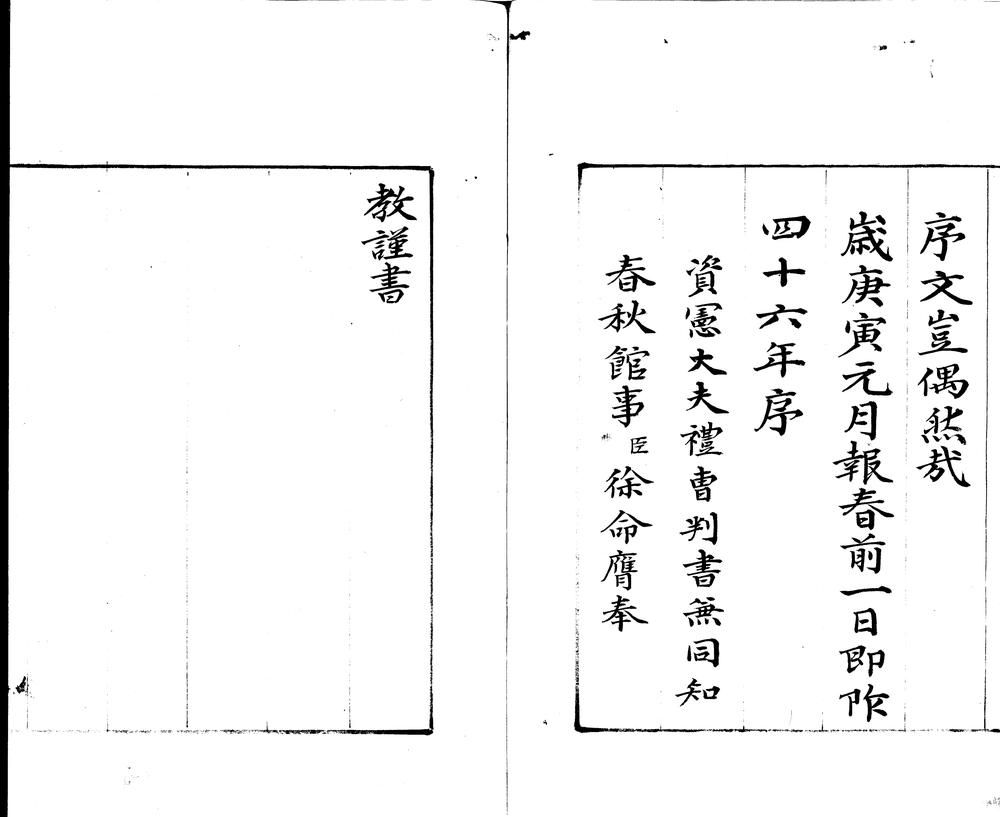 序文豈偶然㦲
歲庚寅元月報春前一日即阼
四十六年序
資憲大夫禮曺判書兼同知
春秋館事臣徐命膺奉
教謹書